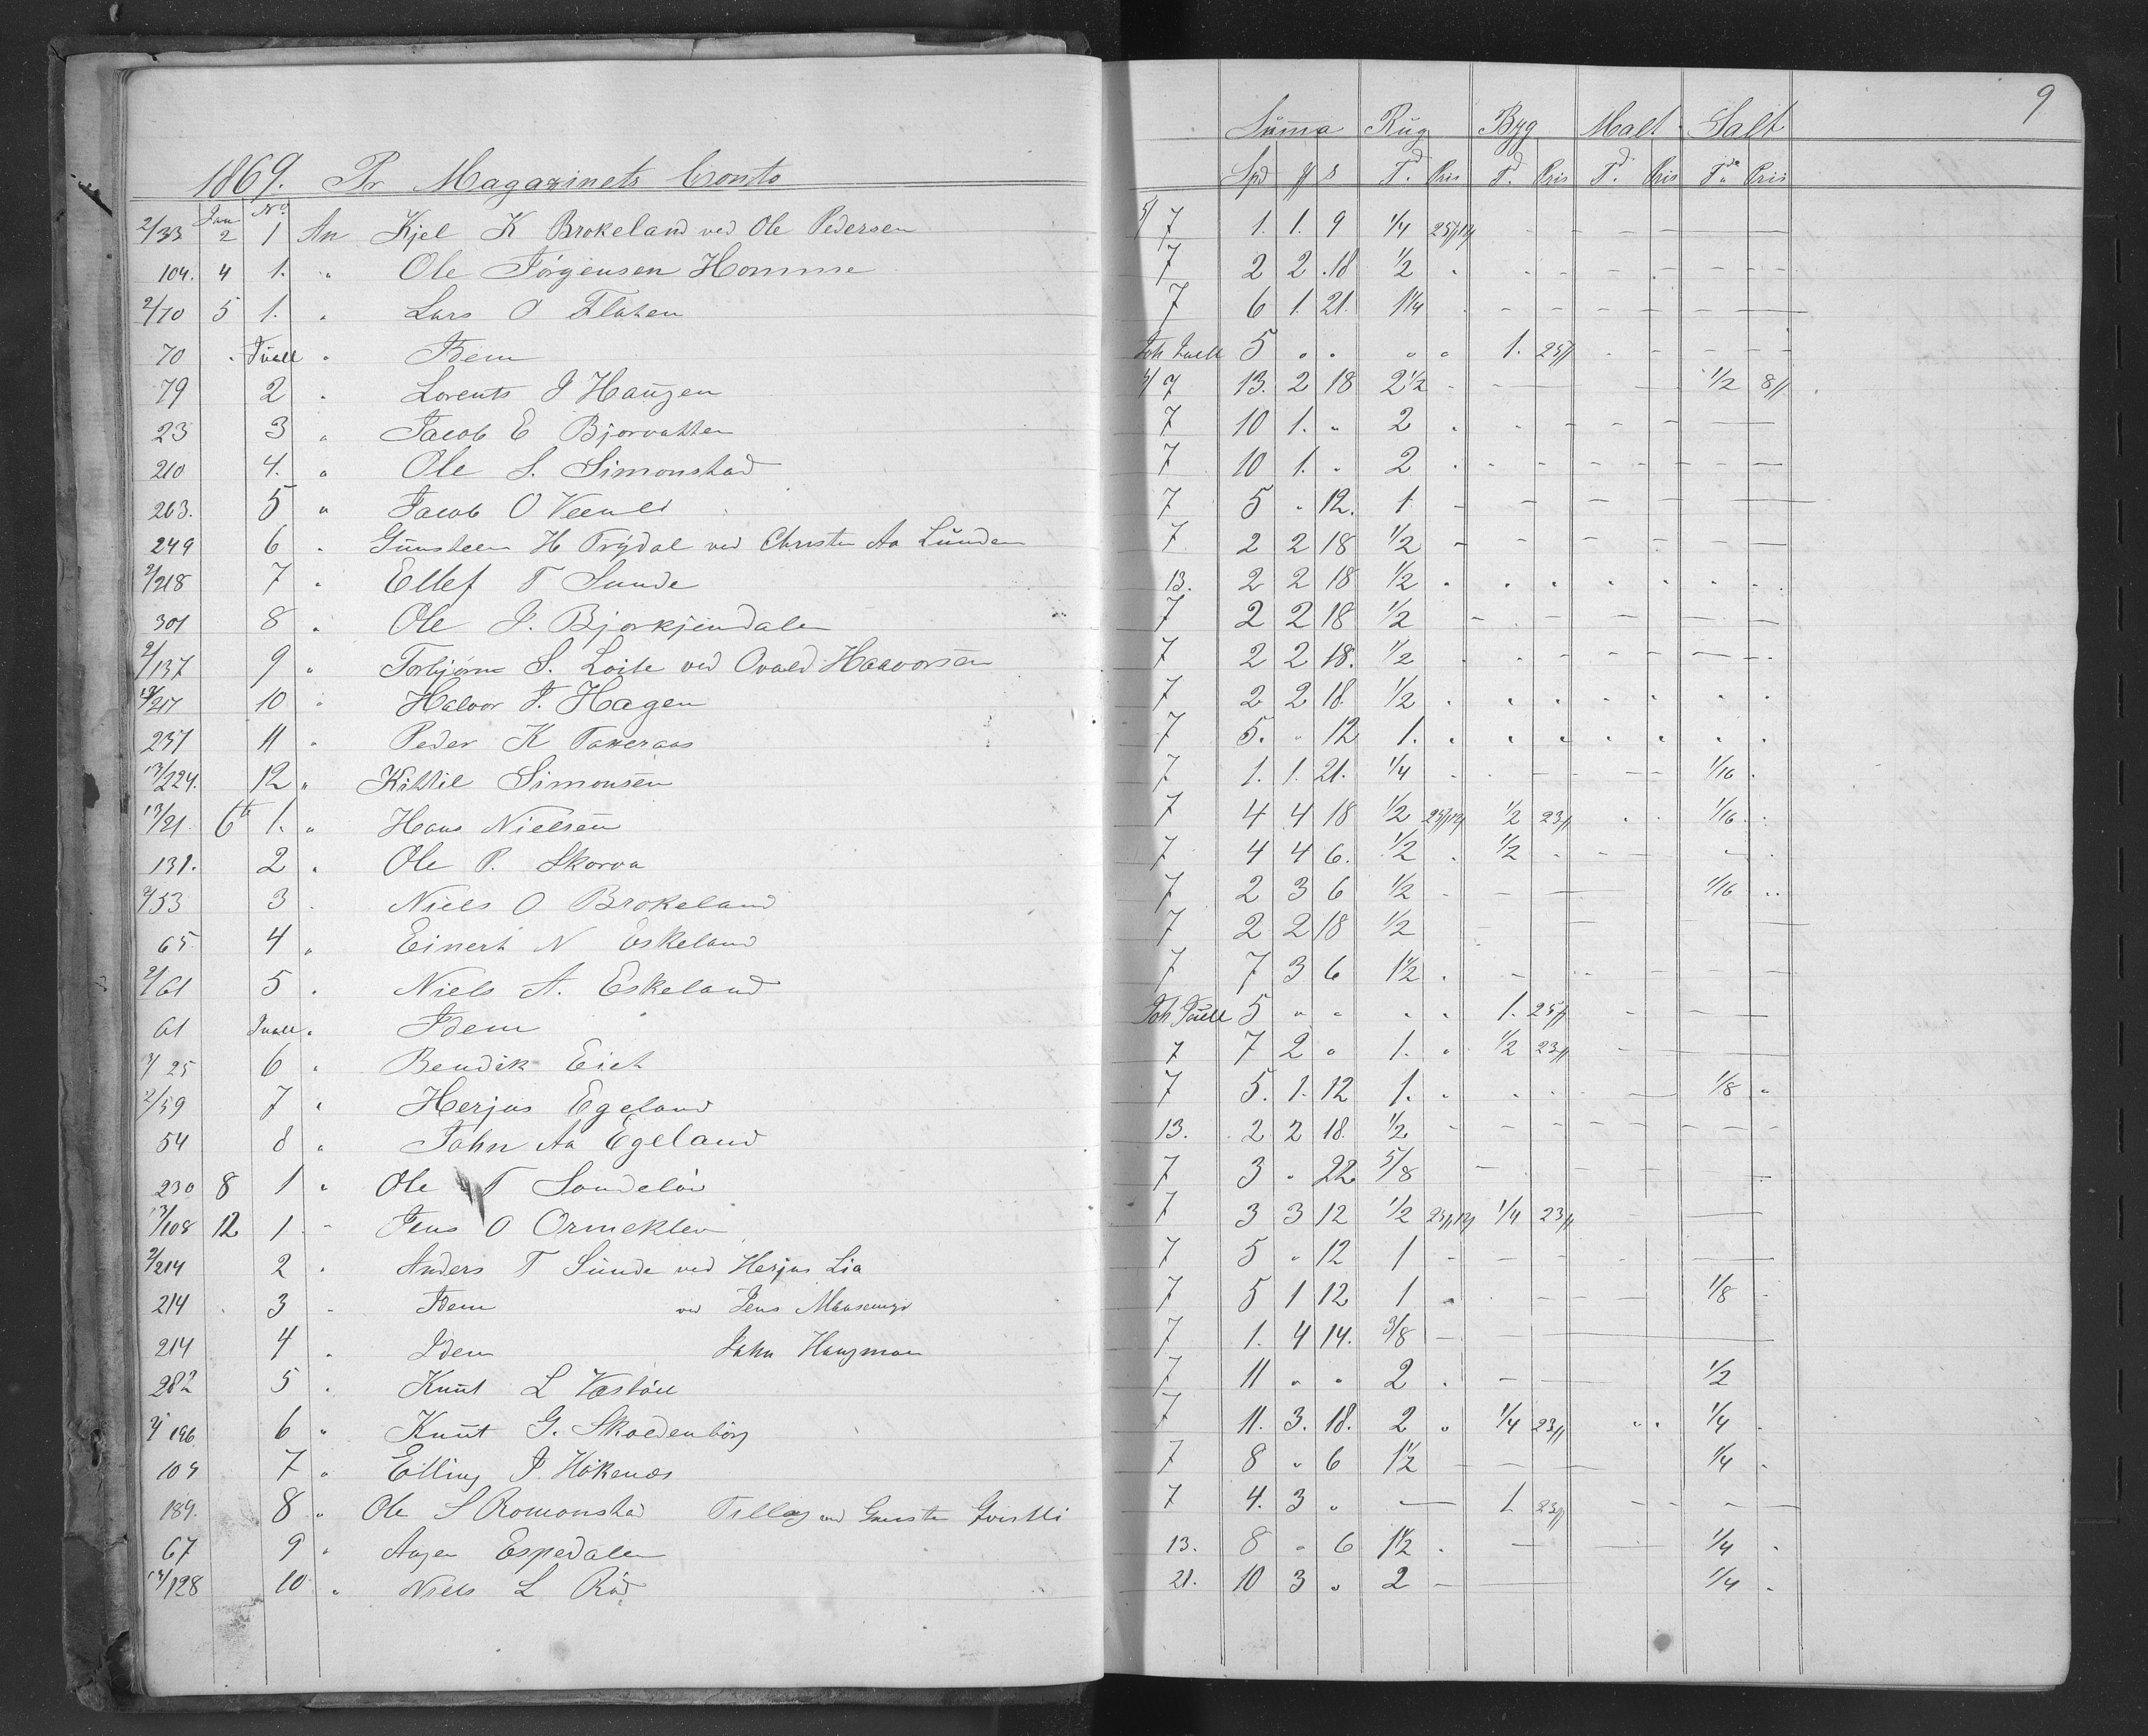 9
Summa Rug Byg Malt Salt
1869. Pr Magazinets Conto
Spd # s Td. Pris Td. Pris Td. Pris Tde Pris
Jan No
2/33 2 1 An Kjel K Brokeland ved Ole Pedersen 7 1. 1. 9 1/4
104. 4 1. " Ole Jørgensen Homme 7 2 2 18 1/2
2/70 5 1. " Lars O Flaten 7 6 1. 21. 1 1/4
70 " Juell " Idem Joh Juell 5 " " " " 1. 25#
79 2 " Lorents J Haugen 7 13. 2 18 2 1/2 1/2 8#
23 3 " Jacob E Bjorvatten 7 10 1. " 2
210 4. " Ole S. Simonstad 7 10 1. " 2
263. 5 " Jacob O 7 5 " 12. 1
249 6 " Gunsteen H Trydal ved Christen Aa Lunden 7 2 2 18 1/2
2/218 7 " Ellef T Sunde 13. 2 2 18 1/2
301 8 " Ole J. Bjorkjendalen 7 2 2 18 1/2
2/137 9 " Torbjørn S. Loite ved Ovald Haavorsen 7 2 2 18. 1/2
217 10 " Halvor J. Hagen 7 2 2 18. 1/2
237 11 " Peder K Taxeraas 7 5. " 12 1.
13/224. 12 " Kittil Simonsen 7 1. 1. 21. 1/4 1/16
13/21 6te 1. " Hans Nielsen 7 4 4 18 1/2 1/2 23# 1/16
131. 2 " Ole P. Skorva 7 4 4 6. 1/2 1/2
2/53 3 " Niels O Brokeland 7 2 3 6 1/2 1/16
65 4 " Einert N Eskeland 7 2 2 18 1/2
2/61 5 " Niels A. Eskeland 7 7 3 6 1 1/2
61 Juell " Idem Joh Juell 5 " " " " 1. 25#
25 6 " Bendik Eiet 7 7 2 " 1. " 1/2 23#
2/59 7 " Herjus Egeland 7 5. 1. 12 1. 1/8
54 8 " John Aa Egeland 13. 2 2 18. 1/2
230 8 1 " Ole T Sandeløv 7 3 " 22 5/8
13/108 12 1 " Jens O Ormeklev 7 3 3 12 1/2 1/4 23#
2/214 2 " Anders T Sunde ved Herjus Lia 7 5 " 12 1
214 3 " Idem ved Jens 7 5 1 12 1 1/8
214 4 " Idem John Haugmoen 7 1. 4 14. 3/8
282 5 " Knut L Vastøll 7 11 " " 2 1/2
196 6 " Knut G. Skoldenborg 7 11. 3. 18. 2 " 1/4 23# 1/4
109 7 " Elling J. Håkenæs 7 8 " 6 1 1/2 1/4
189. 8 " Ole S Romonstad ved 7 4. 3 " 1 23#
67 9 " Aagen Espedalen 13. 8 " 6 1 1/2 1/4
128 10 " Niels L Rød 21. 10 3 " 2 1/4